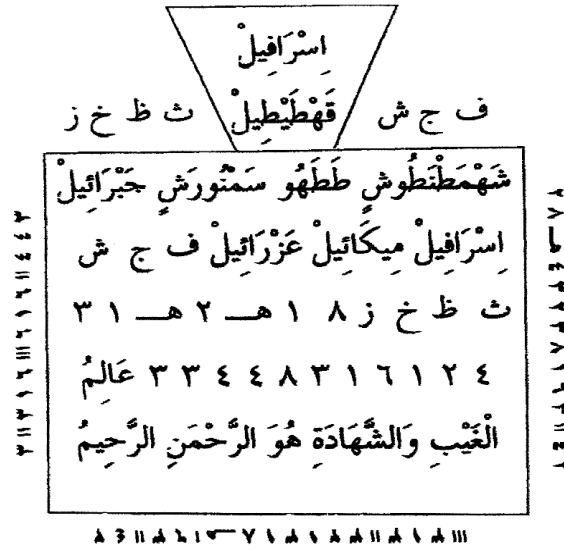 اِسْرَافِيلْ
ف ج ش قَهْطَيْطِيلْ ث ظ خ ز
شَهْمَطْنَطُوشٍ طَطَهُو سَمْنُورَشٍ جَبْرَائِيلْ
اِسْرَافِيلْ مِيكَائِيلْ عَزْرَائِيلْ ف ج ش
ث ظ خ ز ٨ ١ هـ ٢ هـ ١ ٣
٤ ٢ ١ ٦ ١ ٣ ٨ ٤ ٤ ٣ ٣ عَالِمُ
الْغَيْبِ وَالشَّهَادَةِ هُوَ الرَّحْمَنِ الرَّحِيمُ